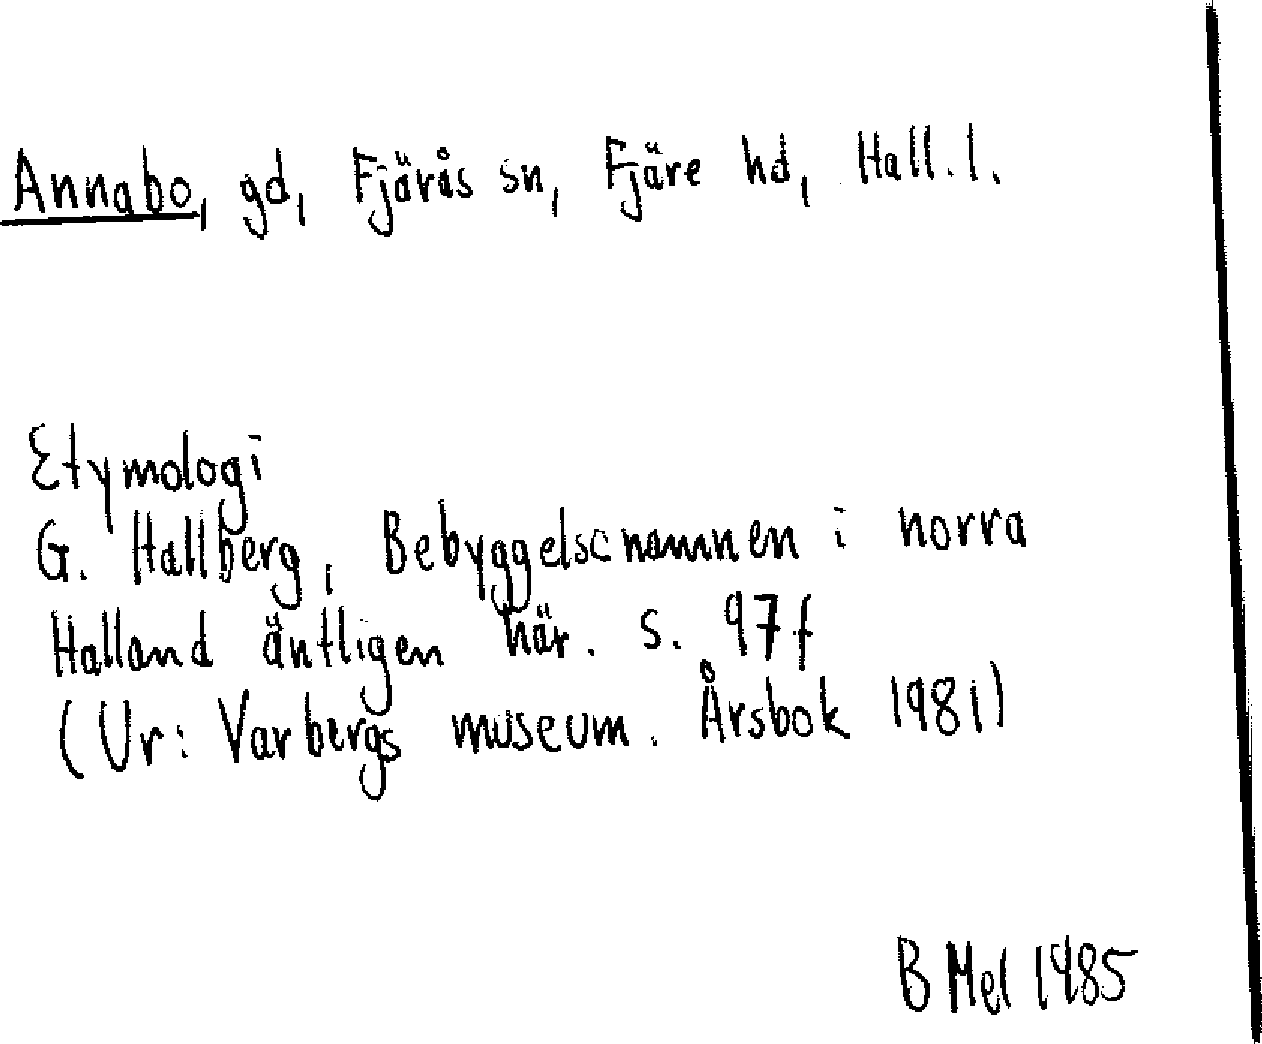 Annabo, gd, Fjärås sn, Fjäre hd, Hall. l.
Etymologi
G. Hallberg, Bebyggelsenamnen i norra
Halland äntligen här. s. 97 f
(Ur: Varbergs museum. Årsbok 1981)
B Mel 1985